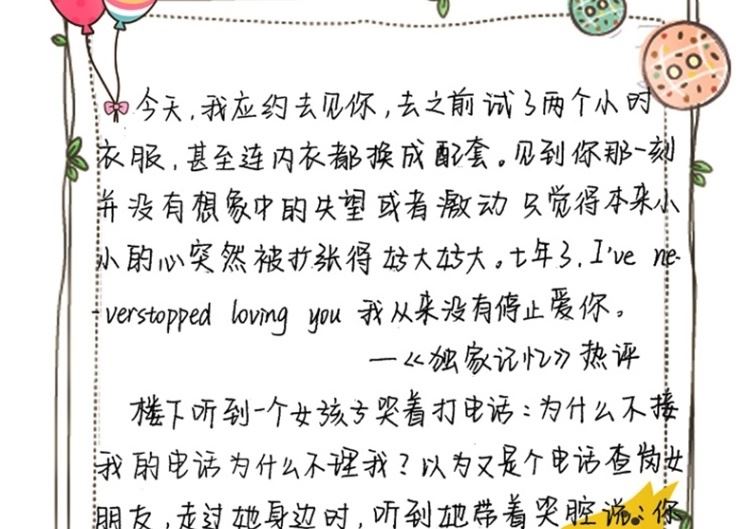 今天,我应约去见你,去之前试了两个小时
衣服,甚至连内衣都换成配套。见到你那一刻
并没有想象中的失望或者激动只觉得本来小
小的心突然被扩张得好大好大。七年了,I've ne-
-verstopped loving you 我从来没有停止爱你。
—《独家记忆》热评
楼下听到一个女孩子哭着打电话:为什么不接
我的电话为什么不理我?以为又是个电话查岗女
朋友,走过她身边时,听到她带着哭腔说:你